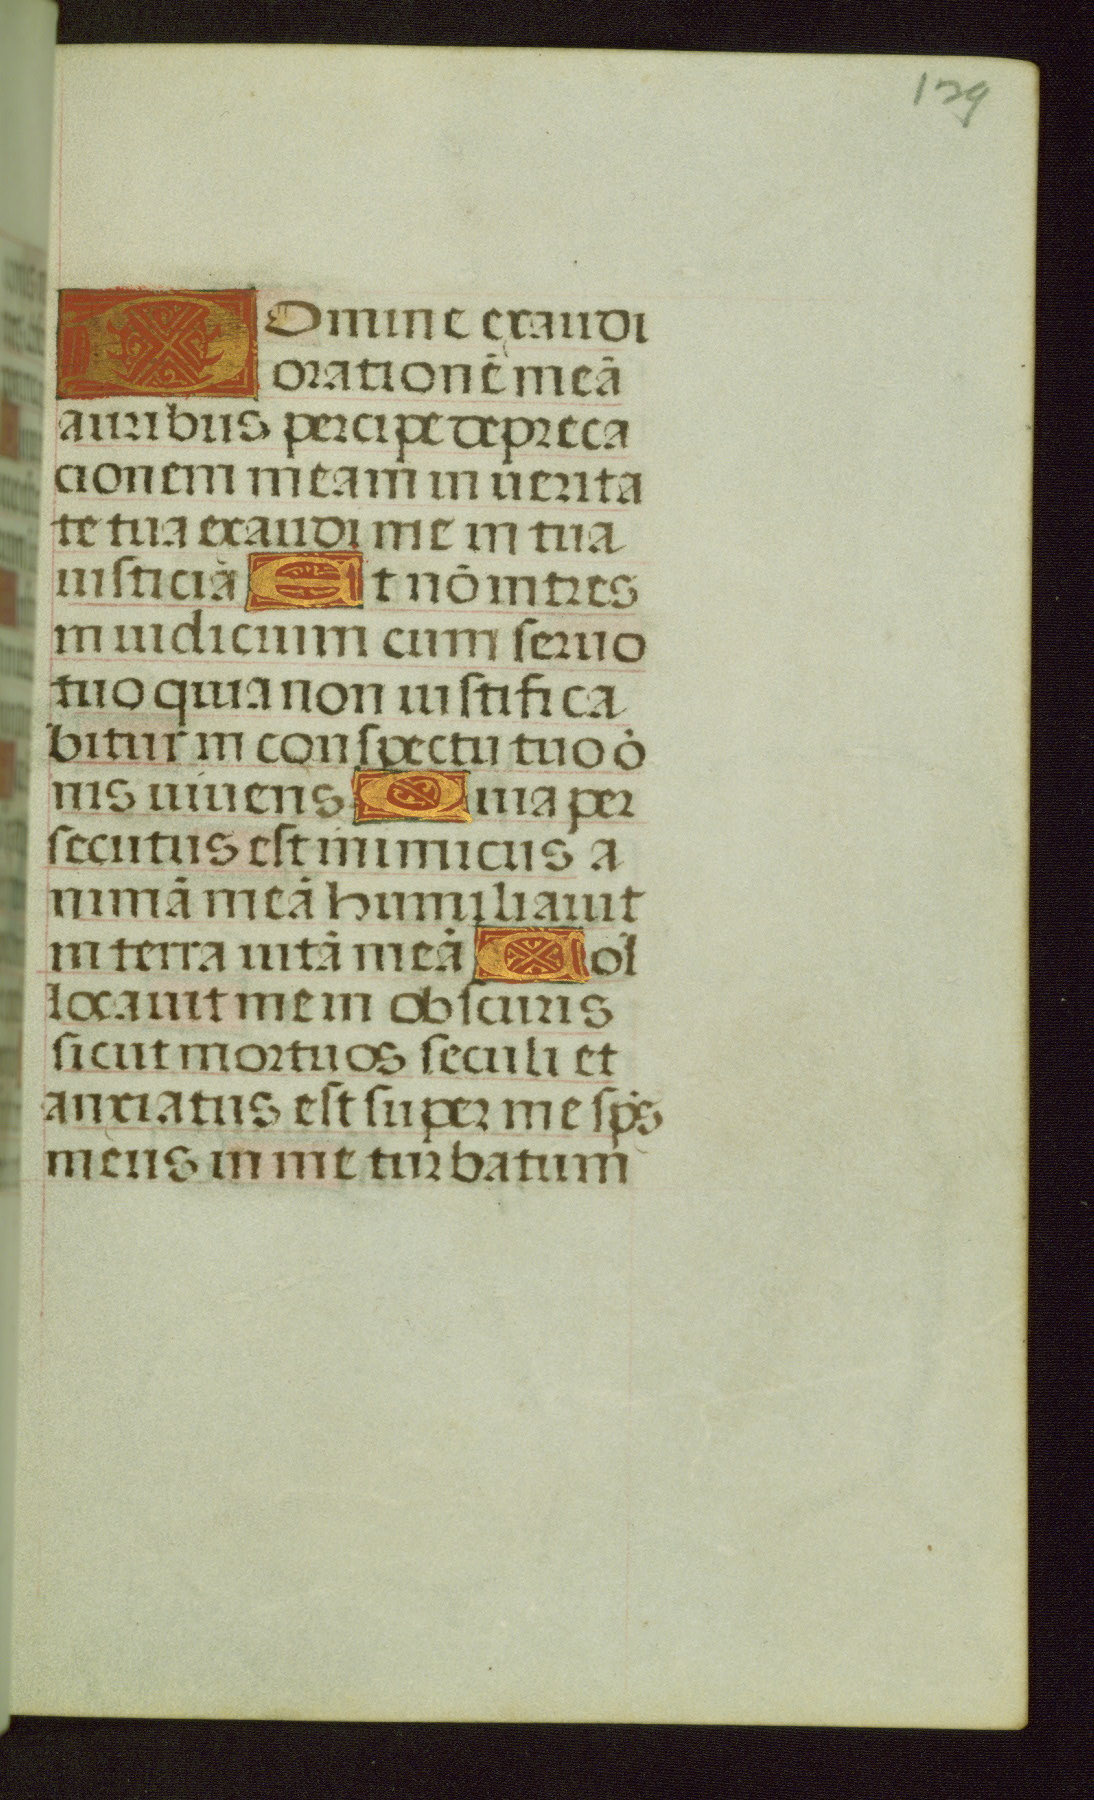 129
Domine exaudi
orationē meā
auribus percipe depreca
cionem meam in uerita
te tua exaudi me in tua
iusticiā Et nō intres
in iudicium cum seruo
tuo quia non iustifica
bitur in conspectu tuo ō
nis uiuens Quia per
secutus est inimicus a
nimā meā humiliauit
in terra uitā meā Col
locauit me in obscuris
sicut mortuos seculi et
anxiatus est super me sp̄s
meus in me turbatum